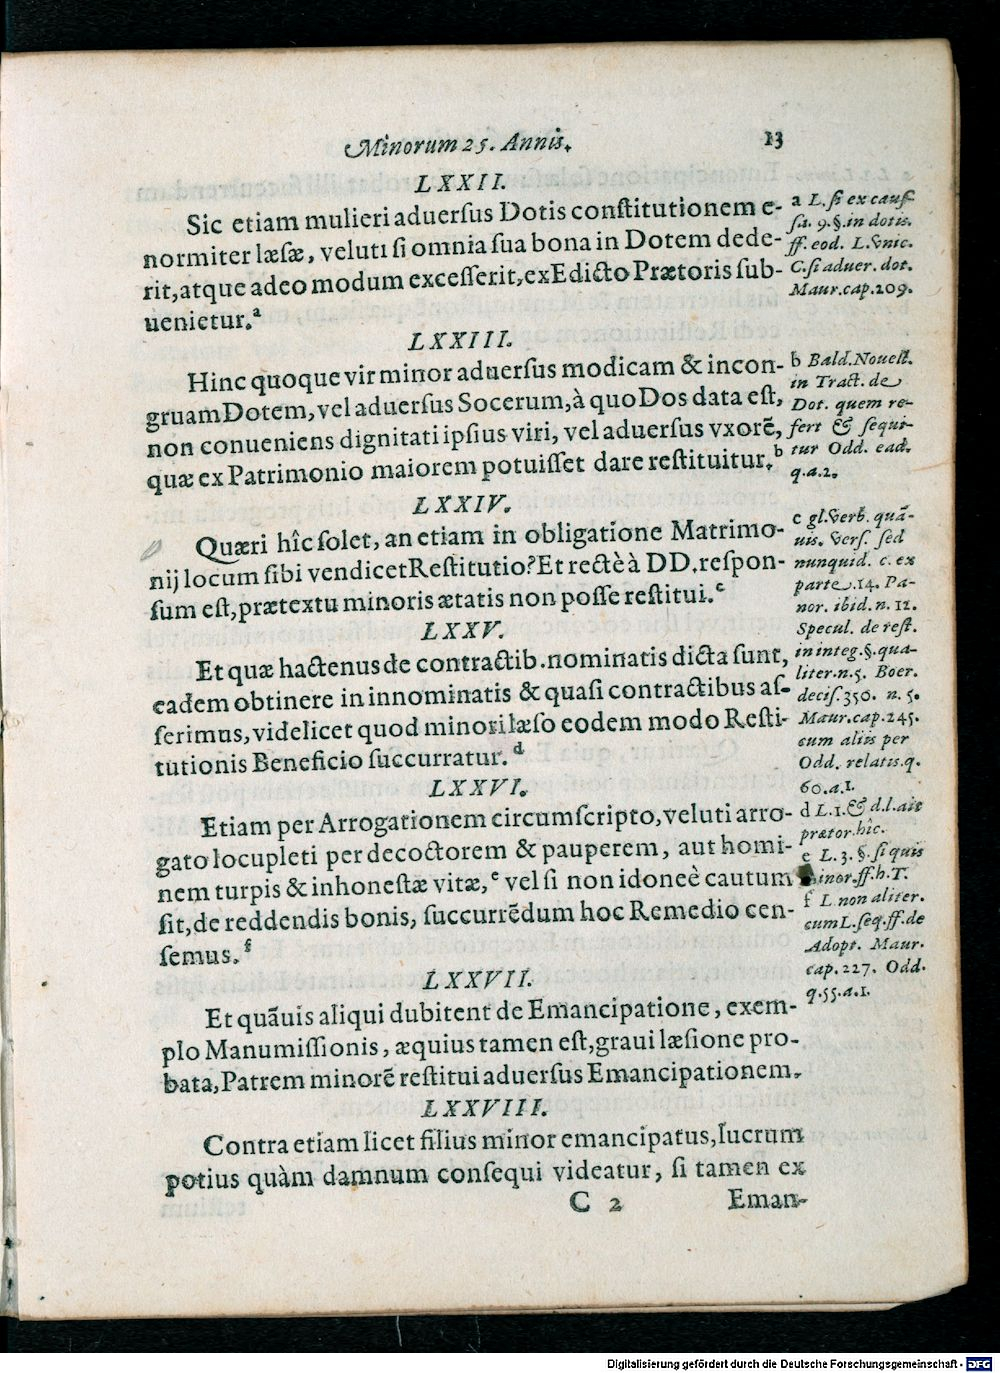 Minorum 25. Annis.
13
LXXII.
Sic etiam mulieri aduerſus Dotis conſtitutionem e-
normiter læſæ, veluti ſi omnia ſua bona in Dotem dede-
rit, atque adeo modum exceſſerit, ex Edicto Prætoris ſub-
uenietur.ᵃ
LXXIII.
Hinc quoque vir minor aduerſus modicam & incon-
gruam Dotem, vel aduerſus Socerum, à quo Dos data eſt,
non conueniens dignitati ipſius viri, vel aduerſus vxorē,
quæ ex Patrimonio maiorem potuiſſet dare reſtituitur.ᵇ
LXXIV.
Quæri hîc ſolet, an etiam in obligatione Matrimo-
nij locum ſibi vendicet Reſtitutio? Et rectè à DD. reſpon-
ſum eſt, prætextu minoris ætatis non poſſe reſtitui.ᶜ
LXXV.
Et quæ hactenus de contractib. nominatis dicta ſunt,
eadem obtinere in innominatis & quaſi contractibus aſ-
ſerimus, videlicet quod minori læſo eodem modo Reſti-
tutionis Beneficio ſuccurratur.ᵈ
LXXVI.
Etiam per Arrogationem circumſcripto, veluti arro-
gato locupleti per decoctorem & pauperem, aut homi-
nem turpis & inhoneſtæ vitæ,ᵉ vel ſi non idoneè cautum
ſit, de reddendis bonis, ſuccurrēdum hoc Remedio cen-
ſemus.ᶠ
LXXVII.
Et quāuis aliqui dubitent de Emancipatione, exem-
plo Manumiſſionis, æquius tamen eſt, graui læſione pro-
bata, Patrem minorē reſtitui aduerſus Emancipationem.
LXXVIII.
Contra etiam licet filius minor emancipatus, lucrum
potius quàm damnum conſequi videatur, ſi tamen ex
C 2
Eman-
a L. ſi ex cauſ-
ſa. 9. §. in dotis.
ff. eod. L. vnic.
C. ſi aduer. dot.
Maur. cap. 209.
b Bald. Nouell.
in Tract. de
Dot. quem re-
fert & ſequi-
tur Odd. ead.
q. a. 2.
c gl. Verb. quā-
uis. Verſ. ſed
nunquid. c. ex
parte. 14. Pa-
nor. ibid. n. 12.
Specul. de reſt.
in integ. §. qua-
liter. n. 5. Boer.
deciſ. 350. n. 5.
Maur. cap. 245.
cum aliis per
Odd. relatis. q.
60. a. 1.
d L. 1. & d. l. ait
prætor. hîc.
e L. 3. §. ſi quis
minor. ff. h. T.
f L. non aliter.
cum L. ſeq. ff. de
Adopt. Maur.
cap. 227. Odd.
q. 55. a. 1.
Digitalisierung gefördert durch die Deutsche Forschungsgemeinschaft - DFG